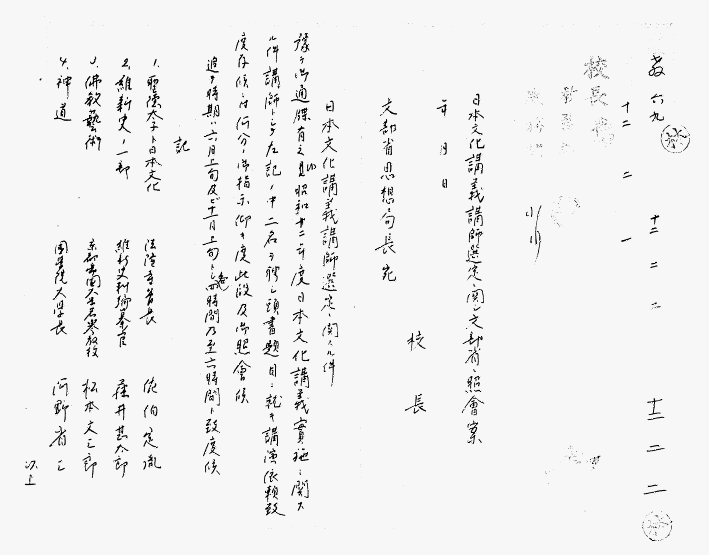 教六九
十二 二 一
十二 二 二
十二 二 二
校長
日本文化講義講師選定ニ関シ文部省ニ照會案
年 月 日
校長
文部省思想局長宛
日本文化講義講師選定ニ関スル件
豫テ御通牒有之昭和十二年度日本文化講義實施ニ関ス
ル件講師トシテ左記ノ中二名ヲ聘シ頭書題目ニ就キ講演依頼致
度存候ニ付何分ノ御指示仰キ度此段及御照會候
追テ時期ハ六月上旬及十一月上旬トシ四時間乃至六時間ト致度候
記
1、聖徳太子ト日本文化 法隆寺貫長 佐伯定胤
2、維新史ノ一部 維新史料編纂官 藤井甚太郎
3、佛教藝術 京都帝國大學名誉教授 松本文三郎
4、神道 國學院大學長 河野省三
以上